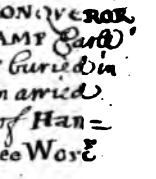 ONQVEROR
AMP Earle
buried in
n arried
of Han=
ee Wore